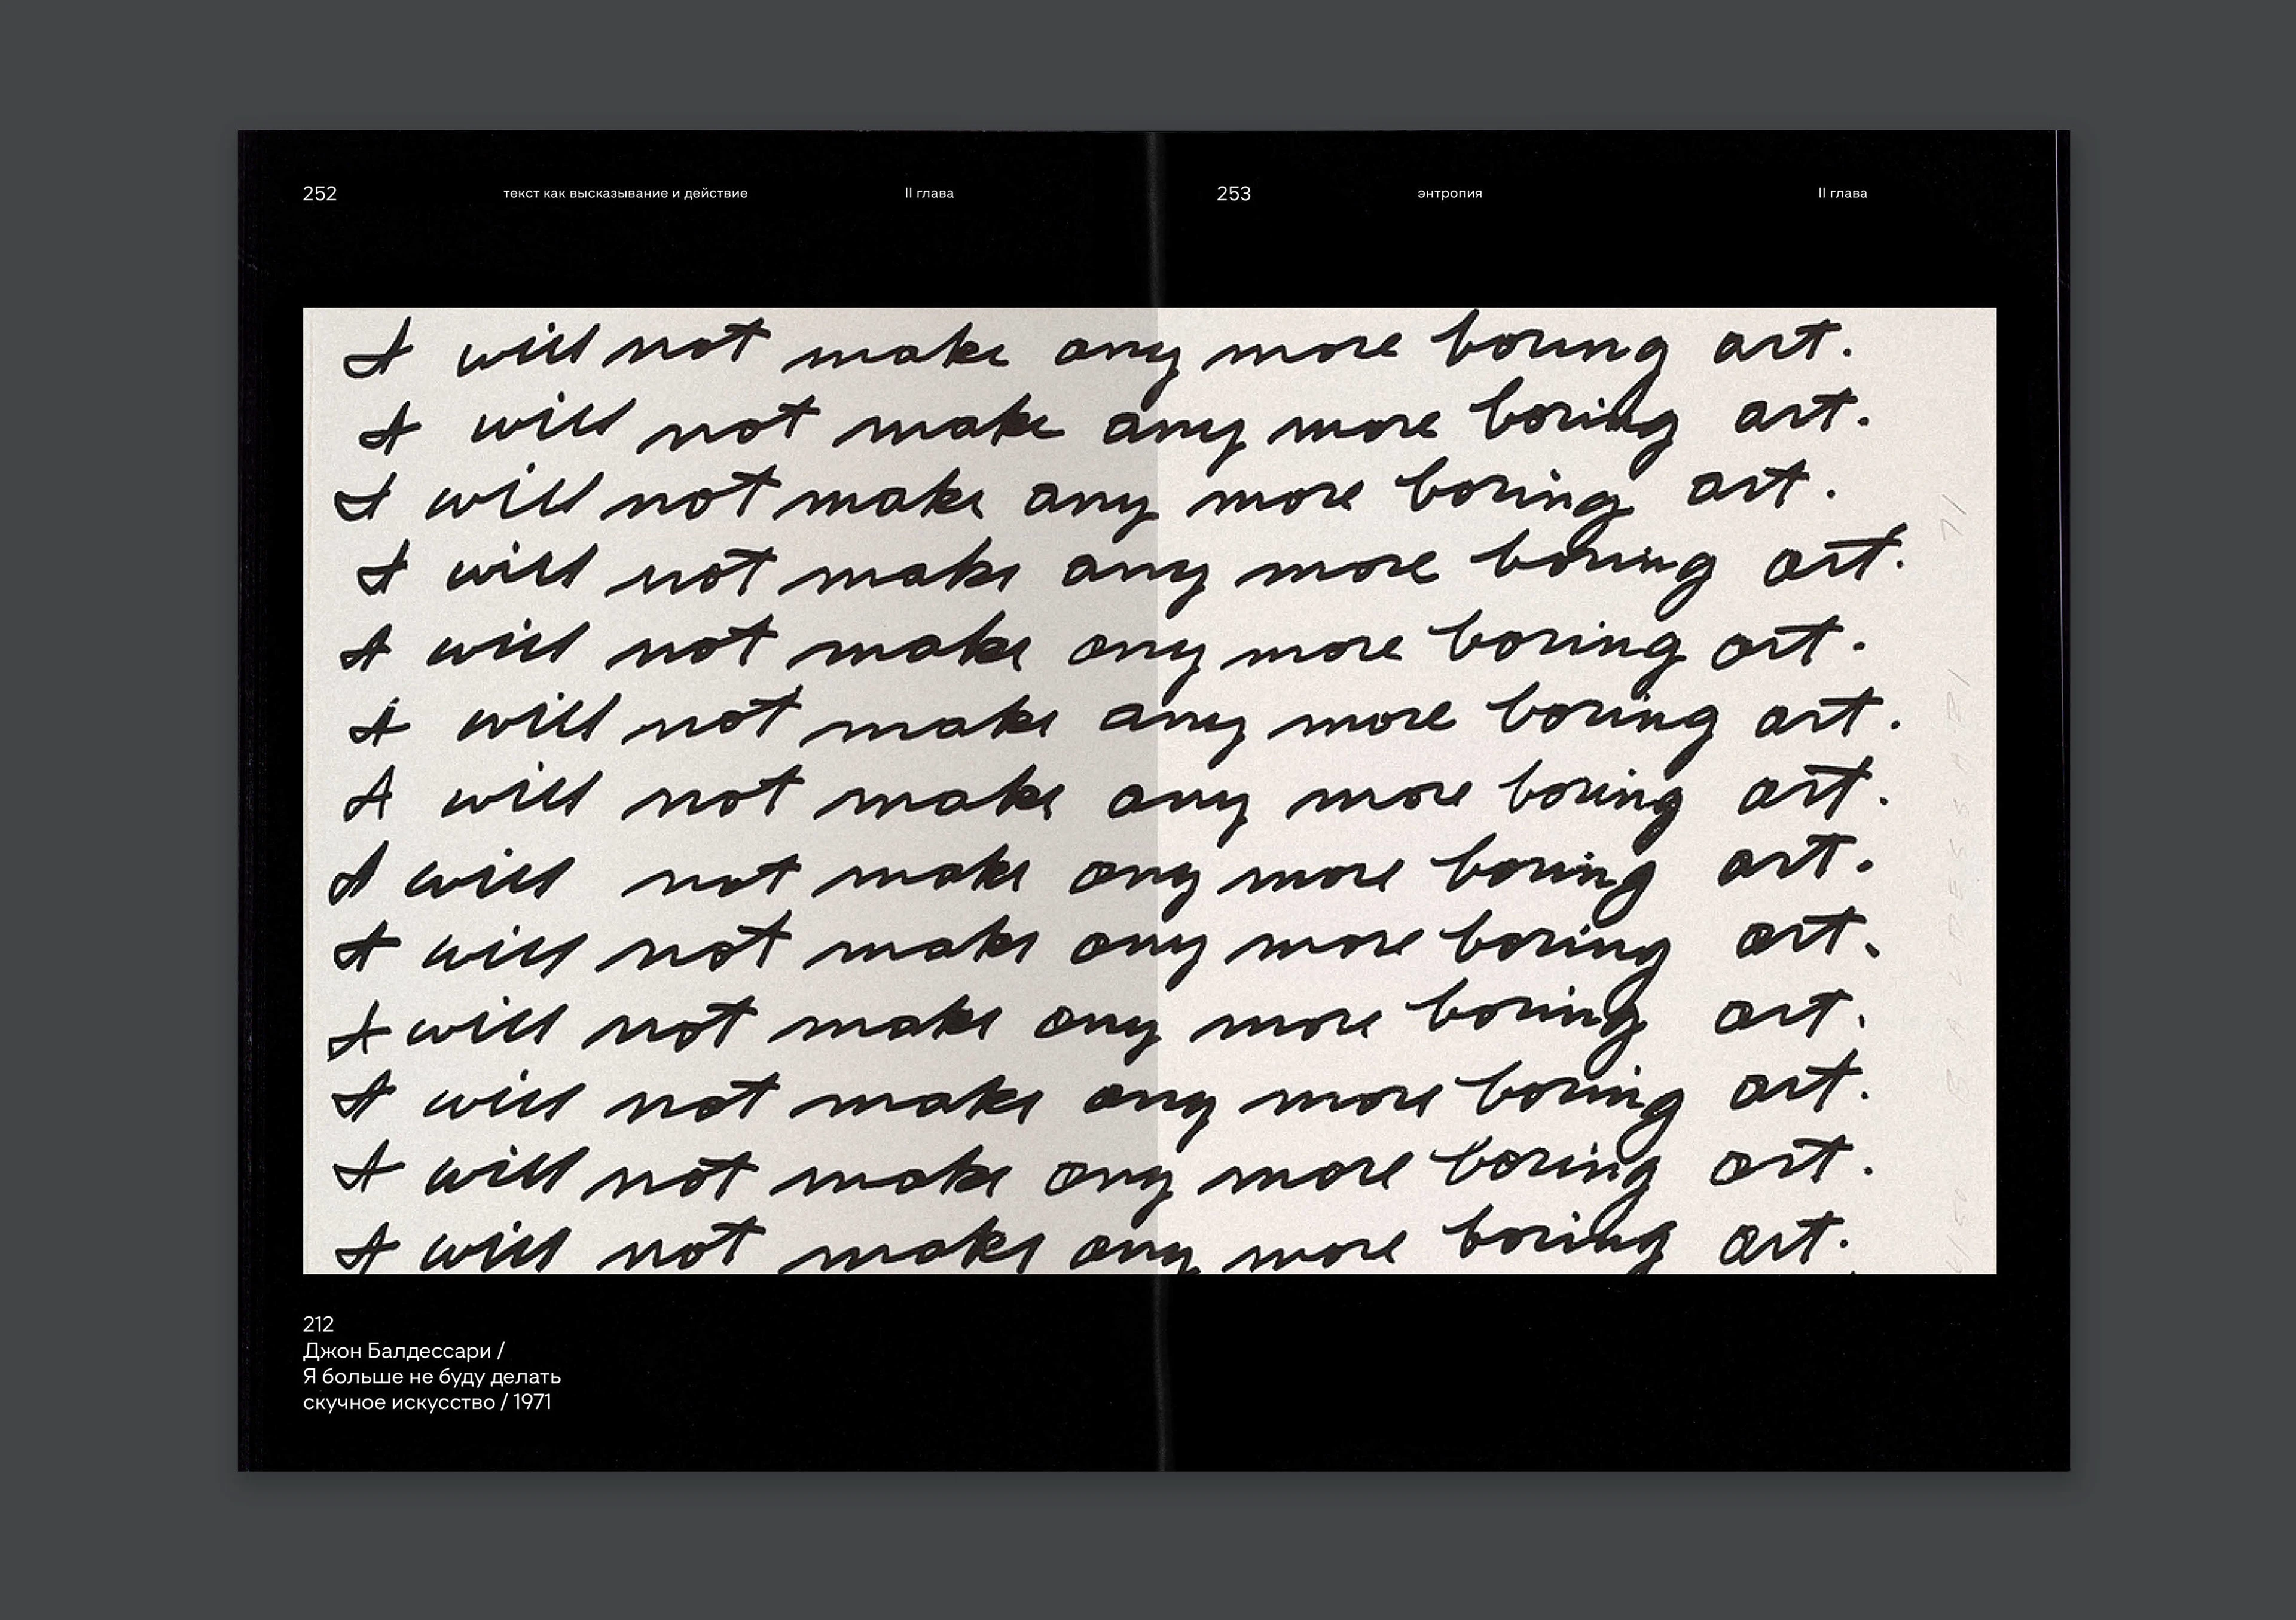 252 текст как высказывание и действие II глава
253 энтропия II глава
I will not make any more boring art.
I will not make any more boring art.
I will not make any more boring art.
I will not make any more boring art.
I will not make any more boring art.
I will not make any more boring art.
I will not make any more boring art.
I will not make any more boring art.
I will not make any more boring art.
I will not make any more boring art.
I will not make any more boring art.
I will not make any more boring art.
I will not make any more boring art.
BALDESSARI 71
212
Джон Балдессари /
Я больше не буду делать
скучное искусство / 1971